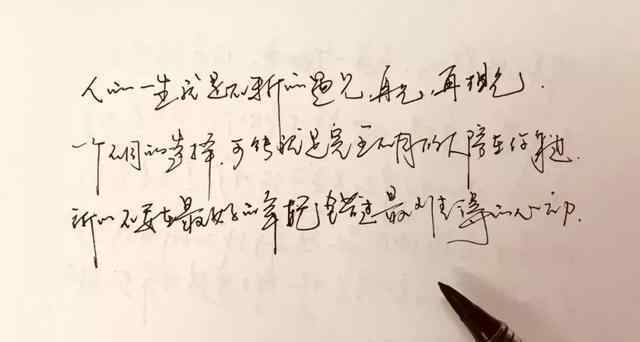 人的一生就是不断的遇见,再见,再相见.
一个不同的选择,可能就是完全不同的人陪在你身边.
所以不要在最好的年纪,错过最难得的心动.